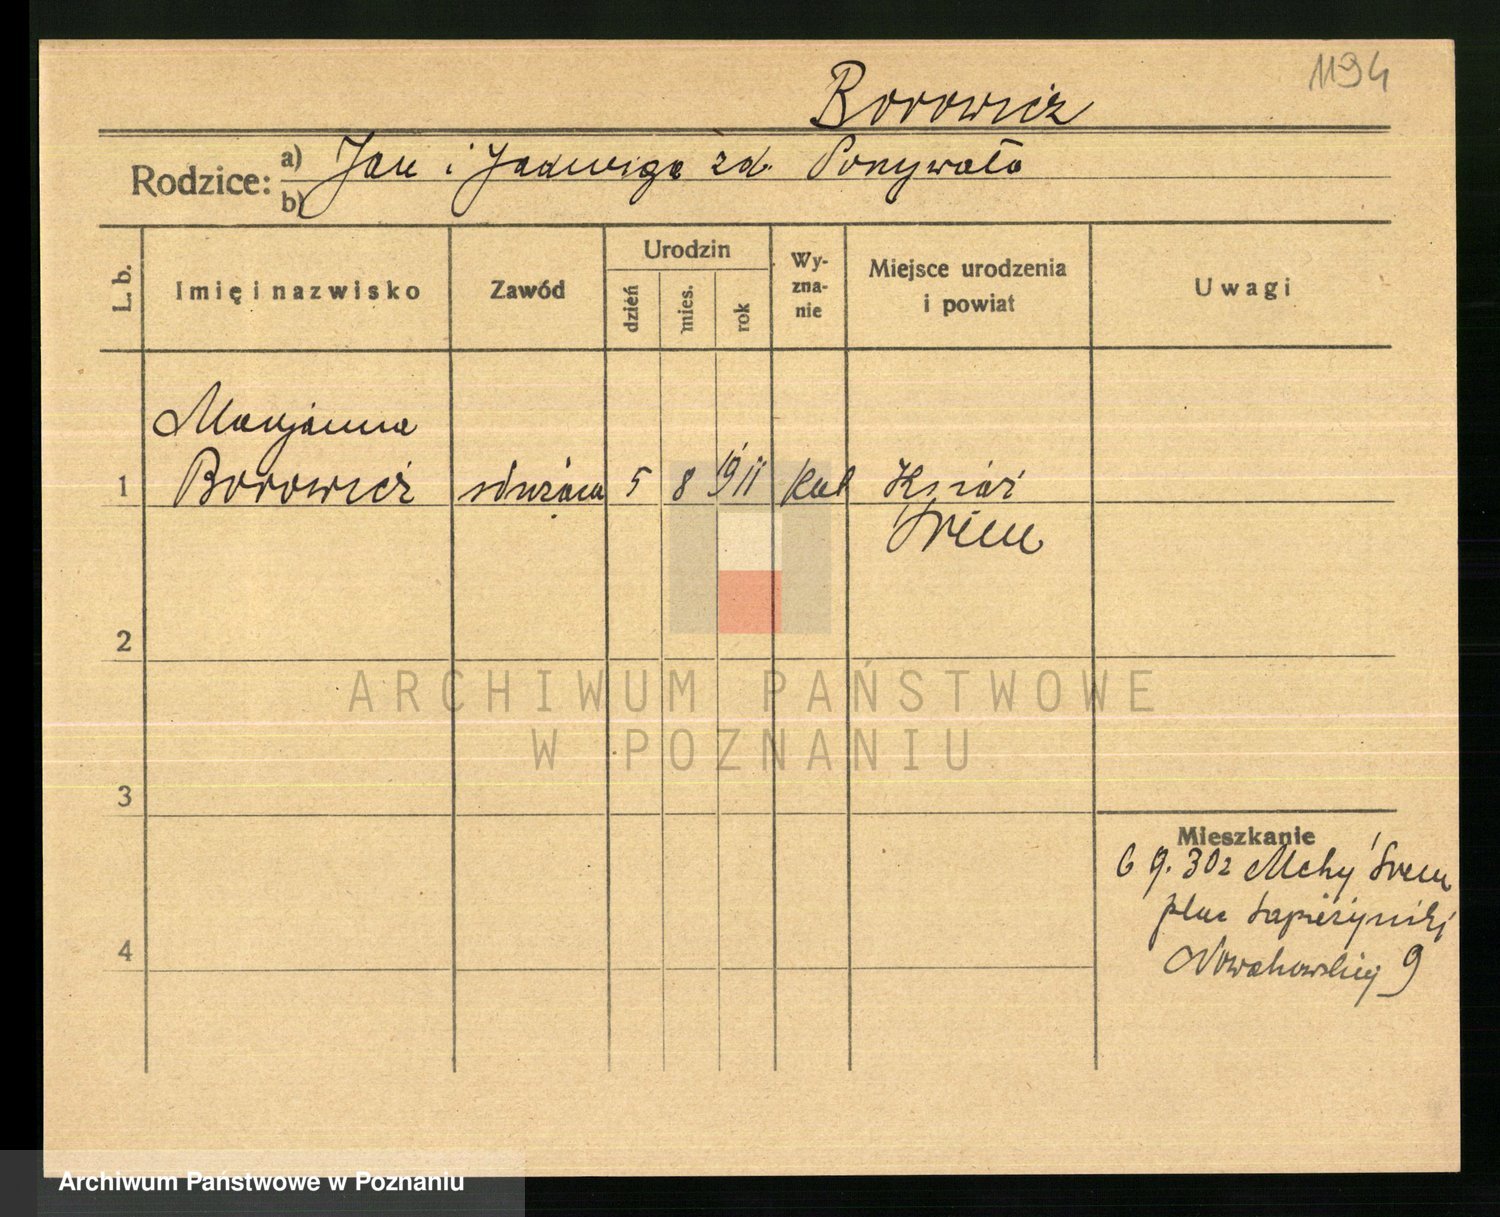 1194
Borowicz
Rodzice: a) Jan i Jadwiga zd.
b)
L. b.
Imię i nazwisko
Zawód
Urodzin
dzień
mies.
rok
Wy-
zna-
nie
Miejsce urodzenia
i powiat
Uwagi
Marjanna
1 Borowicz służąca 5 8 1911 kat Książ
Śrem
2
3
4
Mieszkanie
6 9. 30z Mchy Śrem
plac Sapieżyński
9
ARCHIWUM PAŃSTWOWE
W POZNANIU
Archiwum Państwowe w Poznaniu